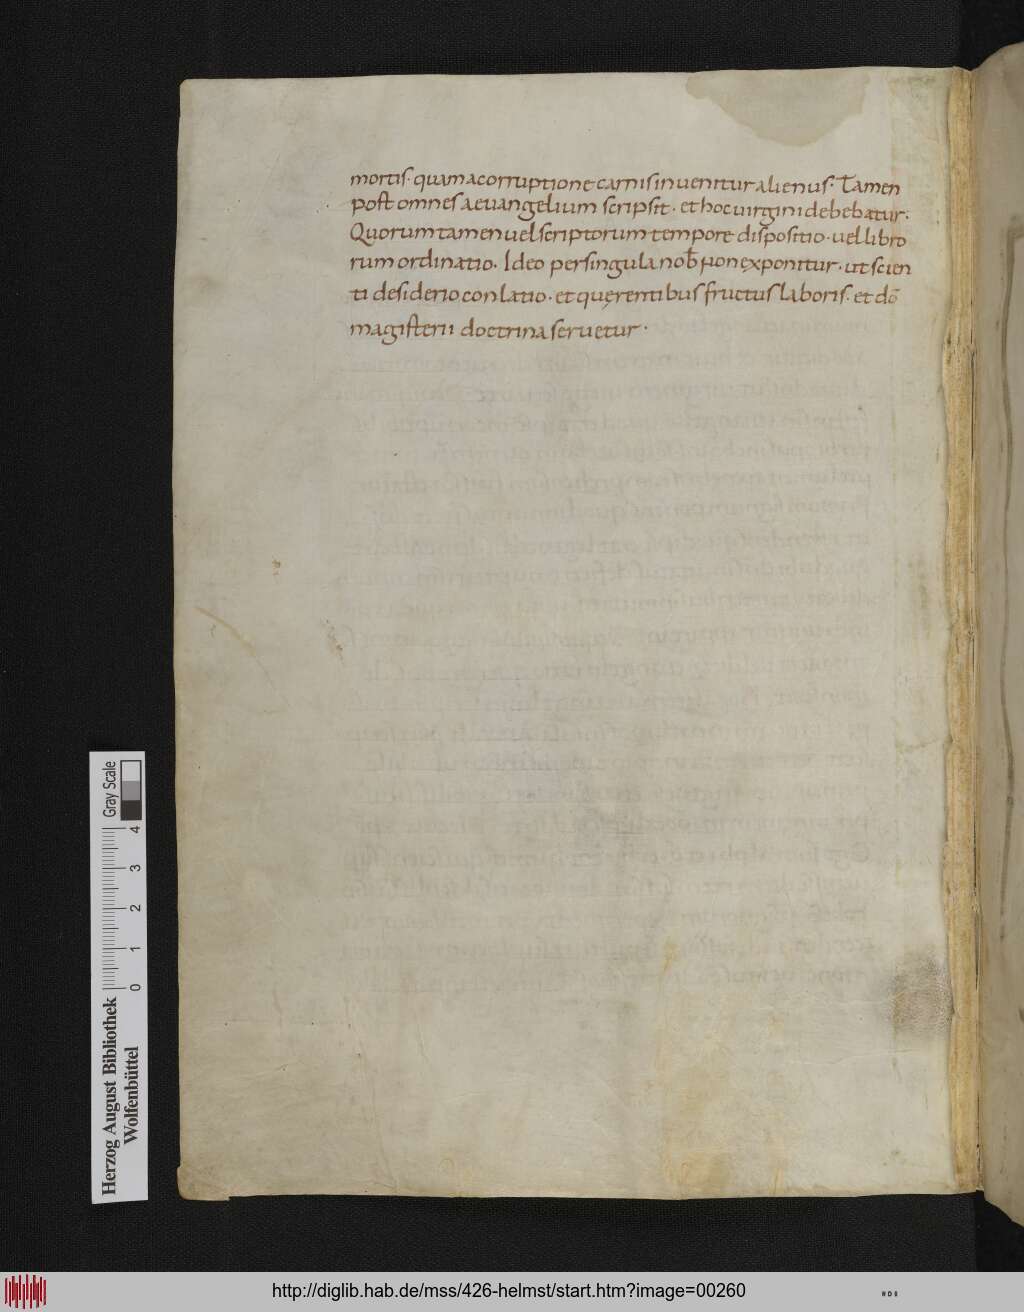 mortis· quam a corruptione carnis inuenitur alienus· Tamen
post omnes aeuangelium scripsit· et hoc uirgini debebatur·
Quorum tamen uel scriptorum tempore dispositio· uel libro
rum ordinatio· Ideo per singula nob̅ non exponitur· ut scien
ti desiderio conlatio· et quęrentibus fructus laboris· et do̅
magisterii doctrina seruetur·
Gray Scale
0 1 2 3 4
Herzog August Bibliothek
Wolfenbüttel
http://diglib.hab.de/mss/426-helmst/start.htm?image=00260